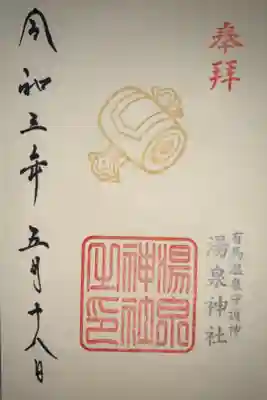 奉拝
有馬温泉守護神
湯泉神社
湯泉
神社
之印
令和三年五月十八日